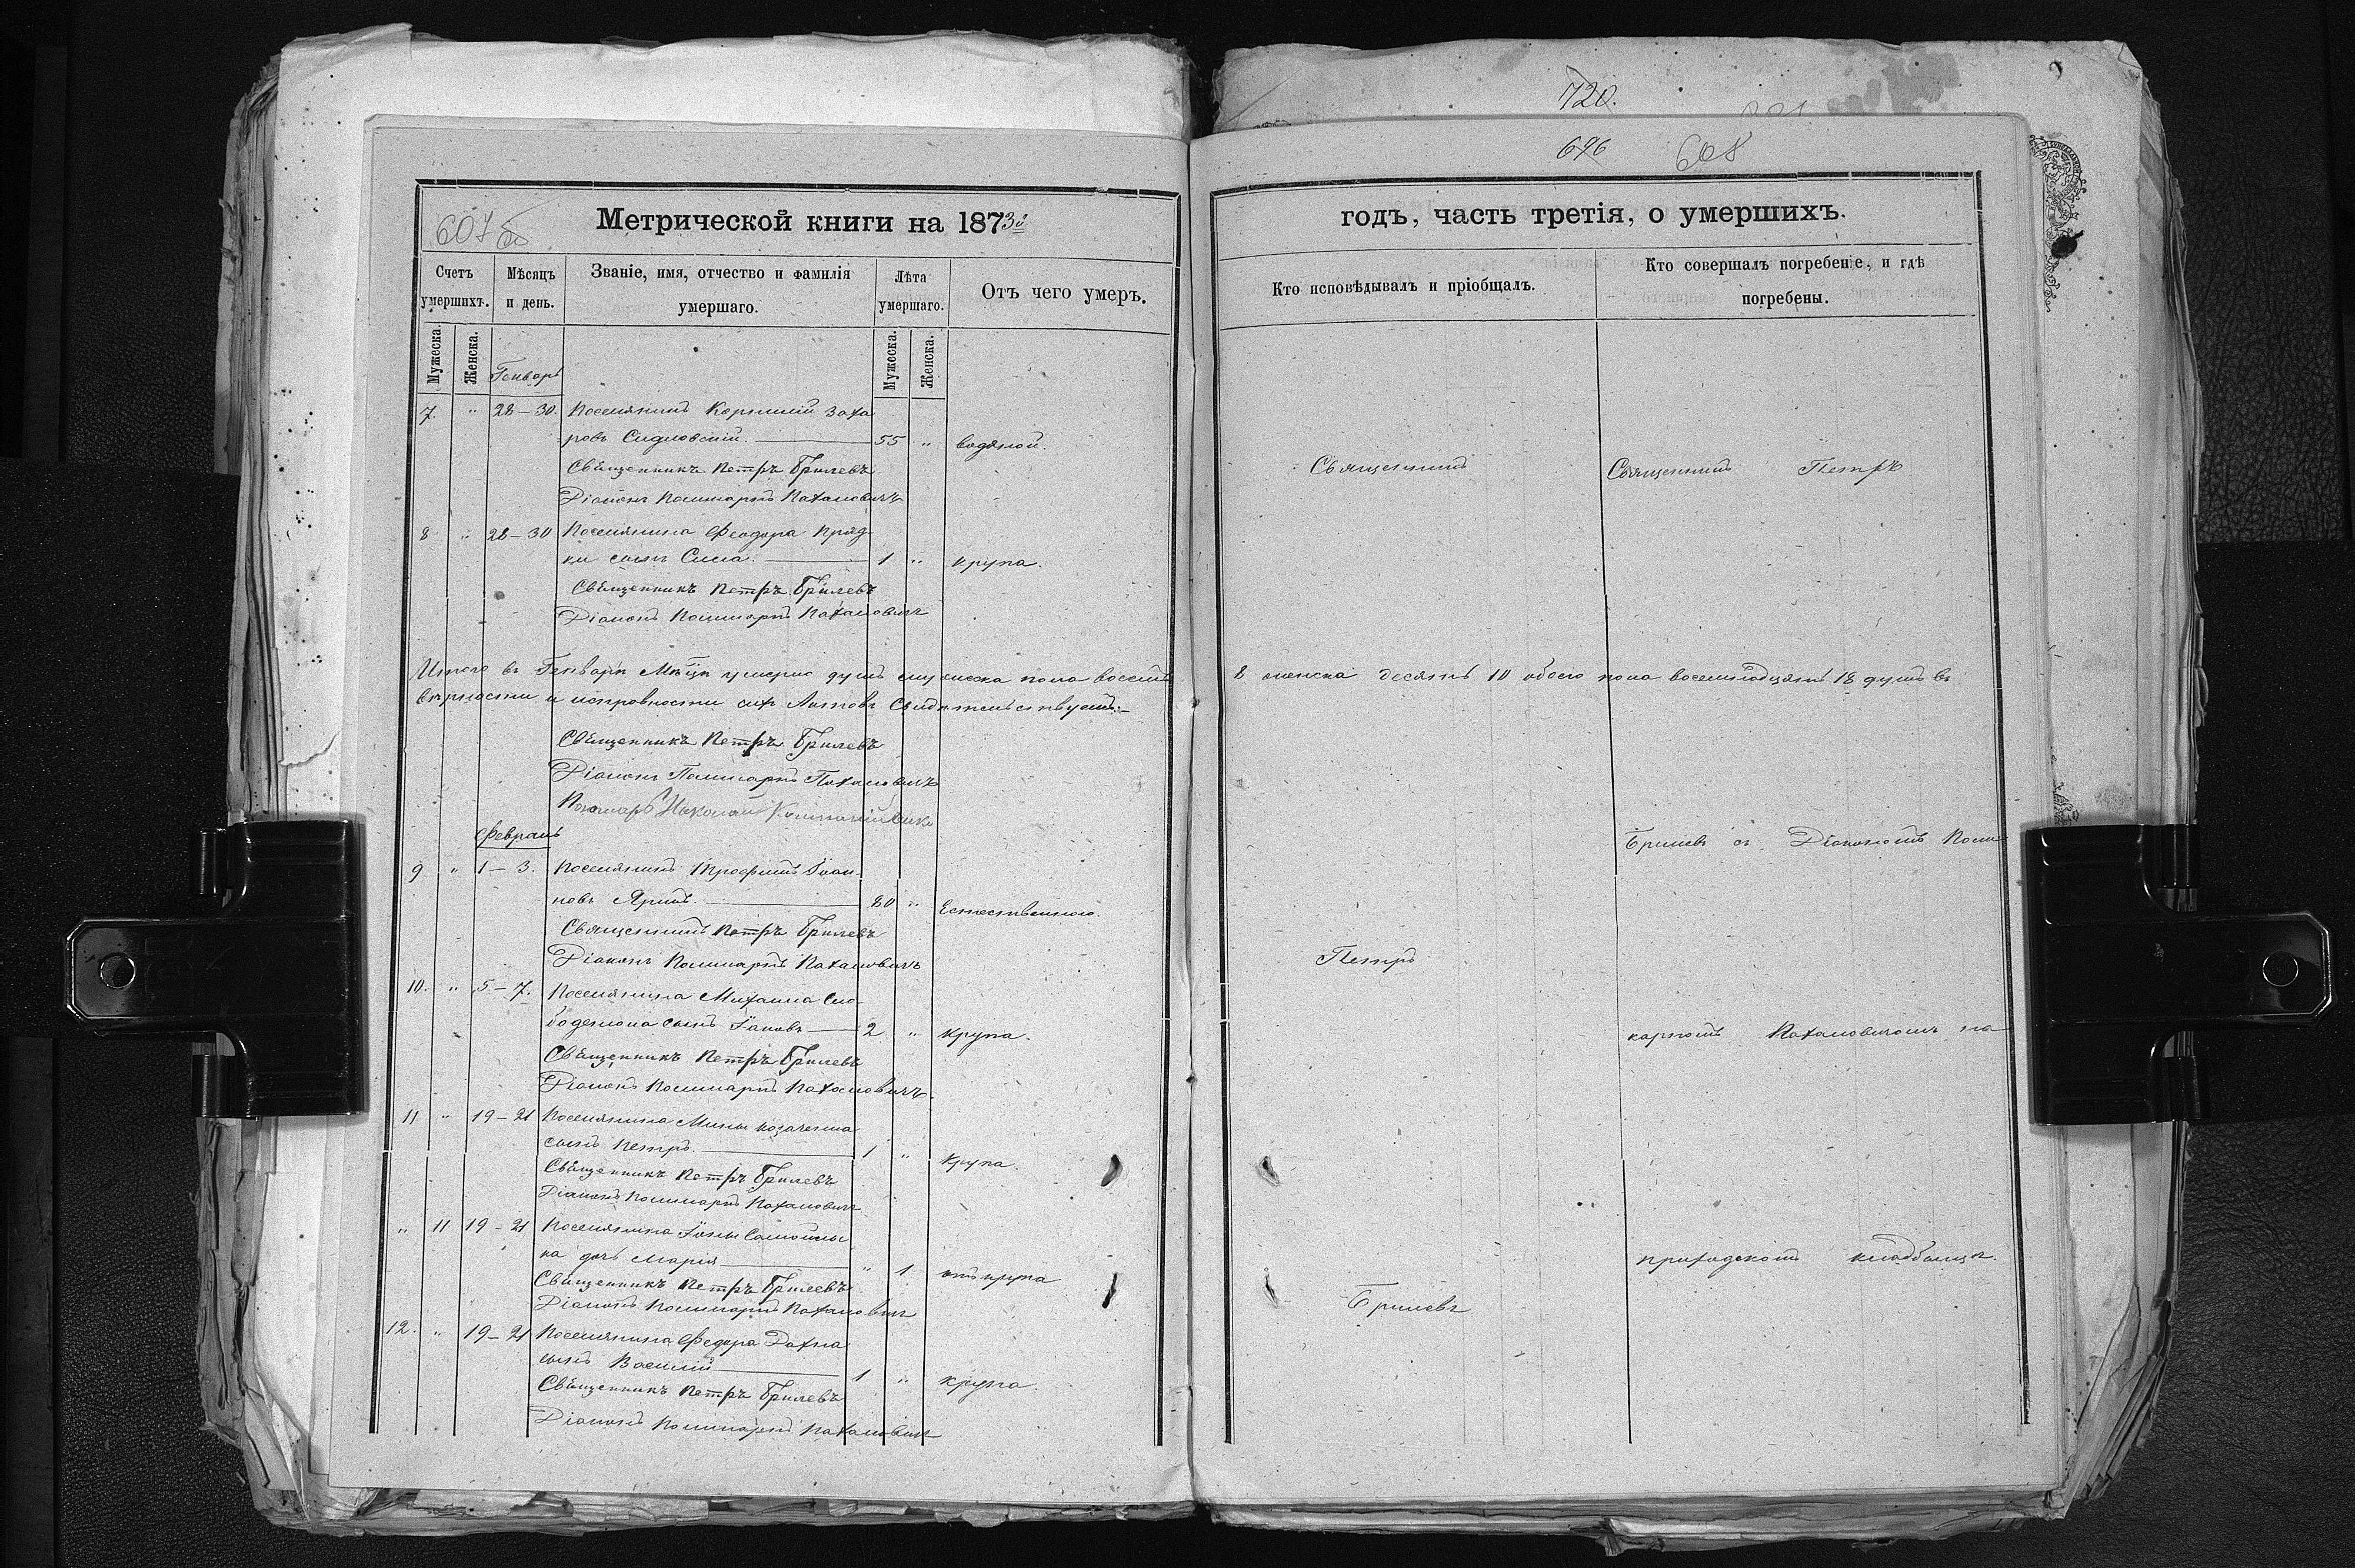 720.
696 608
607 об
Метрической книги на 1873й
годъ, часть третія, о умершихъ.
Счетъ умершихъ.
Мѣсяцъ и день.
Званіе, имя, отчество и фамилія умершаго.
Лѣта умершаго.
Отъ чего умеръ.
Кто исповѣдывалъ и пріобщалъ.
Кто совершалъ погребеніе, и гдѣ погребены.
Мужеска. Женска. Генварь Мужеска. Женска.
7. " 28–30. Поселянинъ Корнилій Заха
ровъ 55 " водяной.
Священникъ Петръ Брилевъ
Діаконъ Поликарпъ Пахаловичъ
Священникъ
Священникъ Петръ
8 " 28–30 Поселянина Феодора Пряд
ки сынъ Сила. 1 " крупа.
Священникъ Петръ Брилевъ
Діаконъ Поликарпъ Пахаловичъ
Итого въ Генварѣ М–цѣ умерло душъ мужеска пола восемь 8 женска десять 10 обоего пола восемнадцать 18 душъ въ
вѣрности и исправности сихъ Актовъ Свидѣтельствуемъ:–
Священникъ Петръ Брилевъ
Діаконъ Поликарпъ Пахаловичъ
Пономарь Николай
Февраль
Брилевъ съ Діакономъ Поли
9 " 1–3. Поселянинъ Трофимъ Іоан
новъ 80 " Естественною.
Священникъ Петръ Брилевъ
Діаконъ Поликарпъ Пахаловичъ
Петръ
10. " 5–7. Поселянина Михаила Сло
боденюка сынъ Іаковъ 2 " крупа.
Священникъ Петръ Брилевъ
Діаконъ Поликарпъ Пахаловичъ.
карпомъ Пахаловичомъ на
11 " 19–21 Поселянина Мины Козаченка
сынъ Петръ. 1 " крупа.
Священникъ Петръ Брилевъ
Діаконъ Поликарпъ Пахаловичъ
" 11 19–21 Поселянина Іоны Самойлы
ка дочь Марія " 1 крупа
Священникъ Петръ Брилевъ
Діаконъ Поликарпъ Пахаловичъ
приходскомъ кладбищѣ.
Брилевъ
12. " 19–21 Поселянина Федора
сынъ Василій 1 " крупа.
Священникъ Петръ Брилевъ
Діаконъ Поликарпъ Пахаловичъ